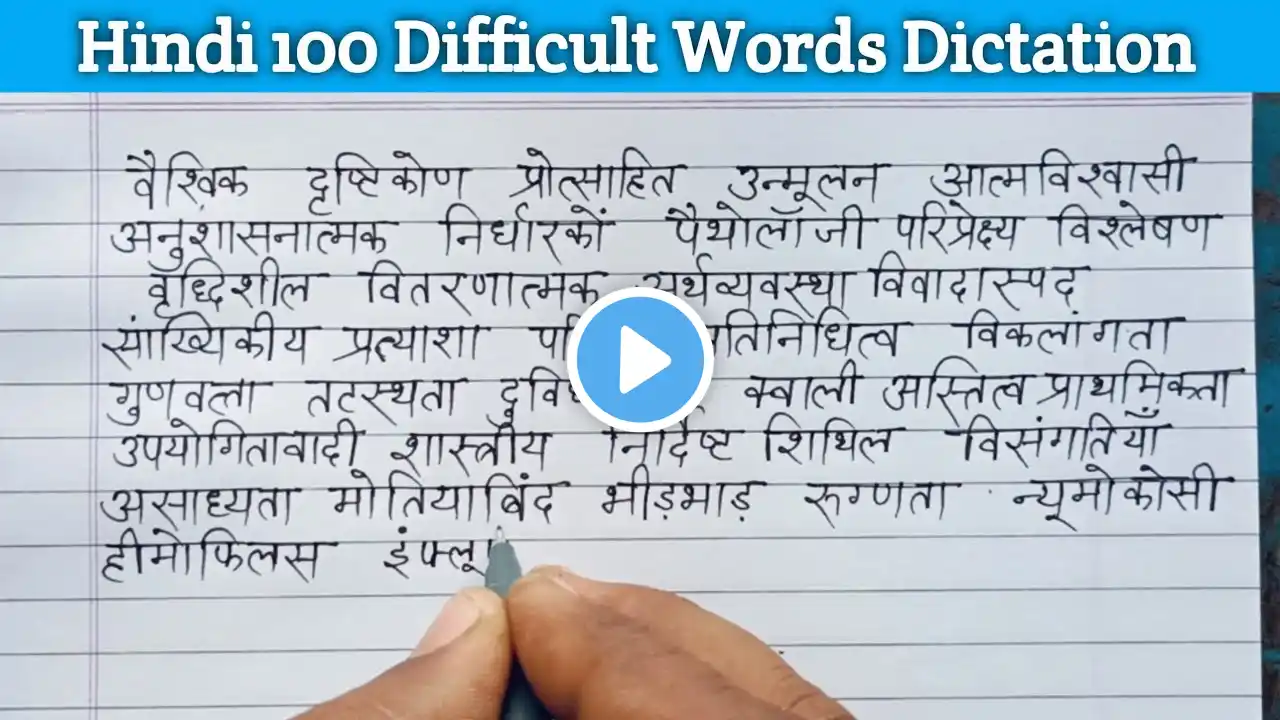 Hindi 100 Difficult Words Dictation
वैश्विक दृष्टिकोण प्रोत्साहित उन्मूलन आत्मविश्वासी
अनुशासनात्मक निर्धारकों पैथोलॉजी परिप्रेक्ष्य विश्लेषण
वृद्धिशील वितरणात्मक अर्थव्यवस्था विवादास्पद
सांख्यिकीय प्रत्याशा विकलांगता
गुणवत्ता तटस्थता क्वाली अस्तित्व प्राथमिकता
उपयोगितावादी शास्त्रीय निर्दिष्ट शिथिल विसंगतियाँ
असाध्यता मोतियाबिंद भीड़भाड़ रुग्णता न्यूमोकोसी
हीमोफिलस इंफ्लू